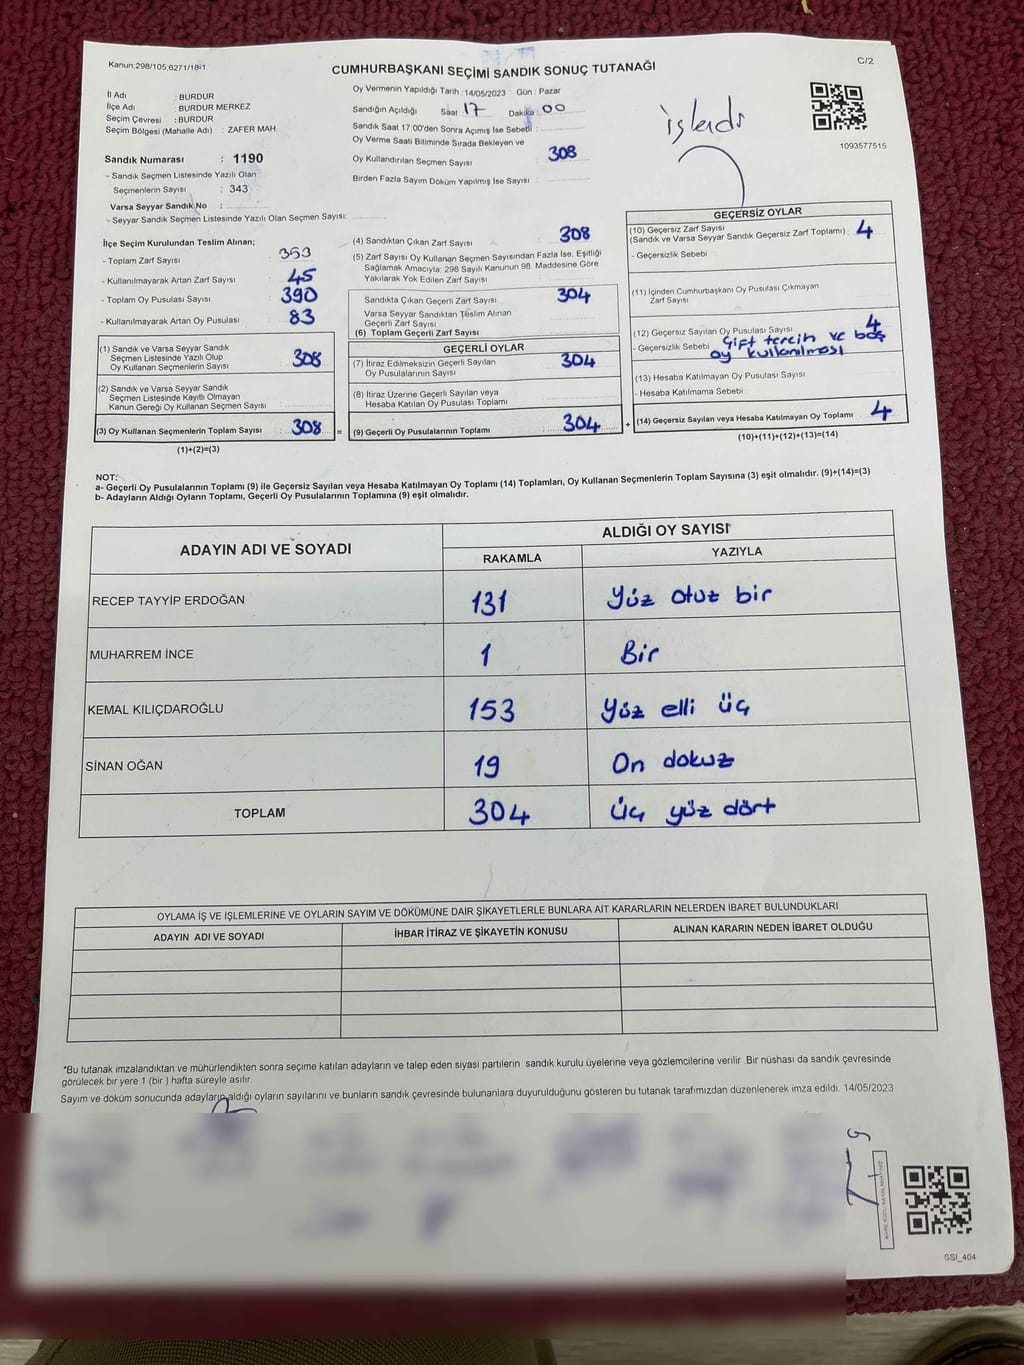 Kanun:298/105,6271/18-1
CUMHURBAŞKANI SEÇİMİ SANDIK SONUÇ TUTANAĞI
C/2
İl Adı : BURDUR
İlçe Adı : BURDUR MERKEZ
Seçim Çevresi : BURDUR
Seçim Bölgesi (Mahalle Adı) : ZAFER MAH.
Sandık Numarası : 1190
- Sandık Seçmen Listesinde Yazılı Olan
Seçmenlerin Sayısı : 343
Varsa Seyyar Sandık No :
- Seyyar Sandık Seçmen Listesinde Yazılı Olan Seçmen Sayısı:
Oy Vermenin Yapıldığı Tarih : 14/05/2023 Gün : Pazar
Sandığın Açıldığı Saat 17 Dakika : 00
Sandık Saat 17:00'den Sonra Açımış İse Sebebi :
Oy Verme Saati Bitiminde Sırada Bekleyen ve
Oy Kullandırılan Seçmen Sayısı : 308
Birden Fazla Sayım Döküm Yapılmış İse Sayısı :
işlendi
1093577515
İlçe Seçim Kurulundan Teslim Alınan;
- Toplam Zarf Sayısı : 353
- Kullanılmayarak Artan Zarf Sayısı : 45
- Toplam Oy Pusulası Sayısı : 390
- Kullanılmayarak Artan Oy Pusulası : 83
(1) Sandık ve Varsa Seyyar Sandık
Seçmen Listesinde Yazılı Olup
Oy Kullanan Seçmenlerin Sayısı : 308
(2) Sandık ve Varsa Seyyar Sandık
Seçmen Listesinde Kayıtlı Olmayan
Kanun Gereği Oy Kullanan Seçmen Sayısı :
(3) Oy Kullanan Seçmenlerin Toplam Sayısı : 308 =
(1)+(2)=(3)
(4) Sandıktan Çıkan Zarf Sayısı : 308
(5) Zarf Sayısı Oy Kullanan Seçmen Sayısından Fazla İse, Eşitliği
Sağlamak Amacıyla; 298 Sayılı Kanunun 98. Maddesine Göre
Yakılarak Yok Edilen Zarf Sayısı :
Sandıkta Çıkan Geçerli Zarf Sayısı : 304
Varsa Seyyar Sandıktan Teslim Alınan
Geçerli Zarf Sayısı
(6) Toplam Geçerli Zarf Sayısı
GEÇERLİ OYLAR
(7) İtiraz Edilmeksizin Geçerli Sayılan
Oy Pusulalarının Sayısı : 304
(8) İtiraz Üzerine Geçerli Sayılan veya
Hesaba Katılan Oy Pusulası Toplamı :
(9) Geçerli Oy Pusulalarının Toplamı : 304 +
GEÇERSİZ OYLAR
(10) Geçersiz Zarf Sayısı
(Sandık ve Varsa Seyyar Sandık Geçersiz Zarf Toplamı) : 4
- Geçersizlik Sebebi
(11) İçinden Cumhurbaşkanı Oy Pusulası Çıkmayan
Zarf Sayısı
(12) Geçersiz Sayılan Oy Pusulası Sayısı : 4
- Geçersizlik Sebebi Çift tercih ve boş
oy kullanılması
(13) Hesaba Katılmayan Oy Pusulası Sayısı
- Hesaba Katılmama Sebebi
(14) Geçersiz Sayılan veya Hesaba Katılmayan Oy Toplamı : 4
(10)+(11)+(12)+(13)=(14)
NOT:
a- Geçerli Oy Pusulalarının Toplamı (9) ile Geçersiz Sayılan veya Hesaba Katılmayan Oy Toplamı (14) Toplamları, Oy Kullanan Seçmenlerin Toplam Sayısına (3) eşit olmalıdır. (9)+(14)=(3)
b- Adayların Aldığı Oyların Toplamı, Geçerli Oy Pusulalarının Toplamına (9) eşit olmalıdır.
ADAYIN ADI VE SOYADI
ALDIĞI OY SAYISI
RAKAMLA
YAZIYLA
RECEP TAYYİP ERDOĞAN 131 Yüz otuz bir
MUHARREM İNCE 1 Bir
KEMAL KILIÇDAROĞLU 153 Yüz elli üç
SİNAN OĞAN 19 On dokuz
TOPLAM 304 Üç yüz dört
OYLAMA İŞ VE İŞLEMLERİNE VE OYLARIN SAYIM VE DÖKÜMÜNE DAİR ŞİKAYETLERLE BUNLARA AİT KARARLARIN NELERDEN İBARET BULUNDUKLARI
ADAYIN ADI VE SOYADI
İHBAR İTİRAZ VE ŞİKAYETİN KONUSU
ALINAN KARARIN NEDEN İBARET OLDUĞU
*Bu tutanak imzalandıktan ve mühürlendikten sonra seçime katılan adayların ve talep eden siyasi partilerin sandık kurulu üyelerine veya gözlemcilerine verilir. Bir nüshası da sandık çevresinde
görülecek bir yere 1 (bir ) hafta süreyle asılır.
Sayım ve döküm sonucunda adayların aldığı oyların sayılarını ve bunların sandık çevresinde bulunanlara duyurulduğunu gösteren bu tutanak tarafımızdan düzenlenerek imza edildi. 14/05/2023
SSI_404